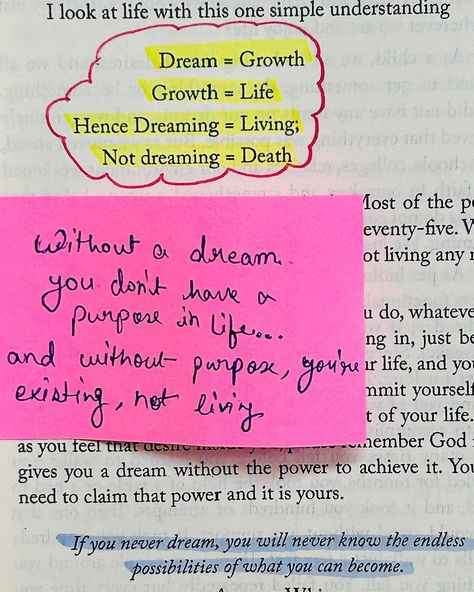 I look at life with this one simple understanding
Dream = Growth
Growth = Life
Hence Dreaming = Living;
Not dreaming = Death
Most of the
eventy-five.
ot living any
Without a dream
you don't have a
purpose in life...
and without purpose, you're
existing, not living
u do, whatever
ng in, just be
ur life, and you
mmit yourself
t of your life.
as you feel that desire inside you, please remember God
gives you a dream without the power to achieve it. You
need to claim that power and it is yours.
If you never dream, you will never know the endless
possibilities of what you can become.